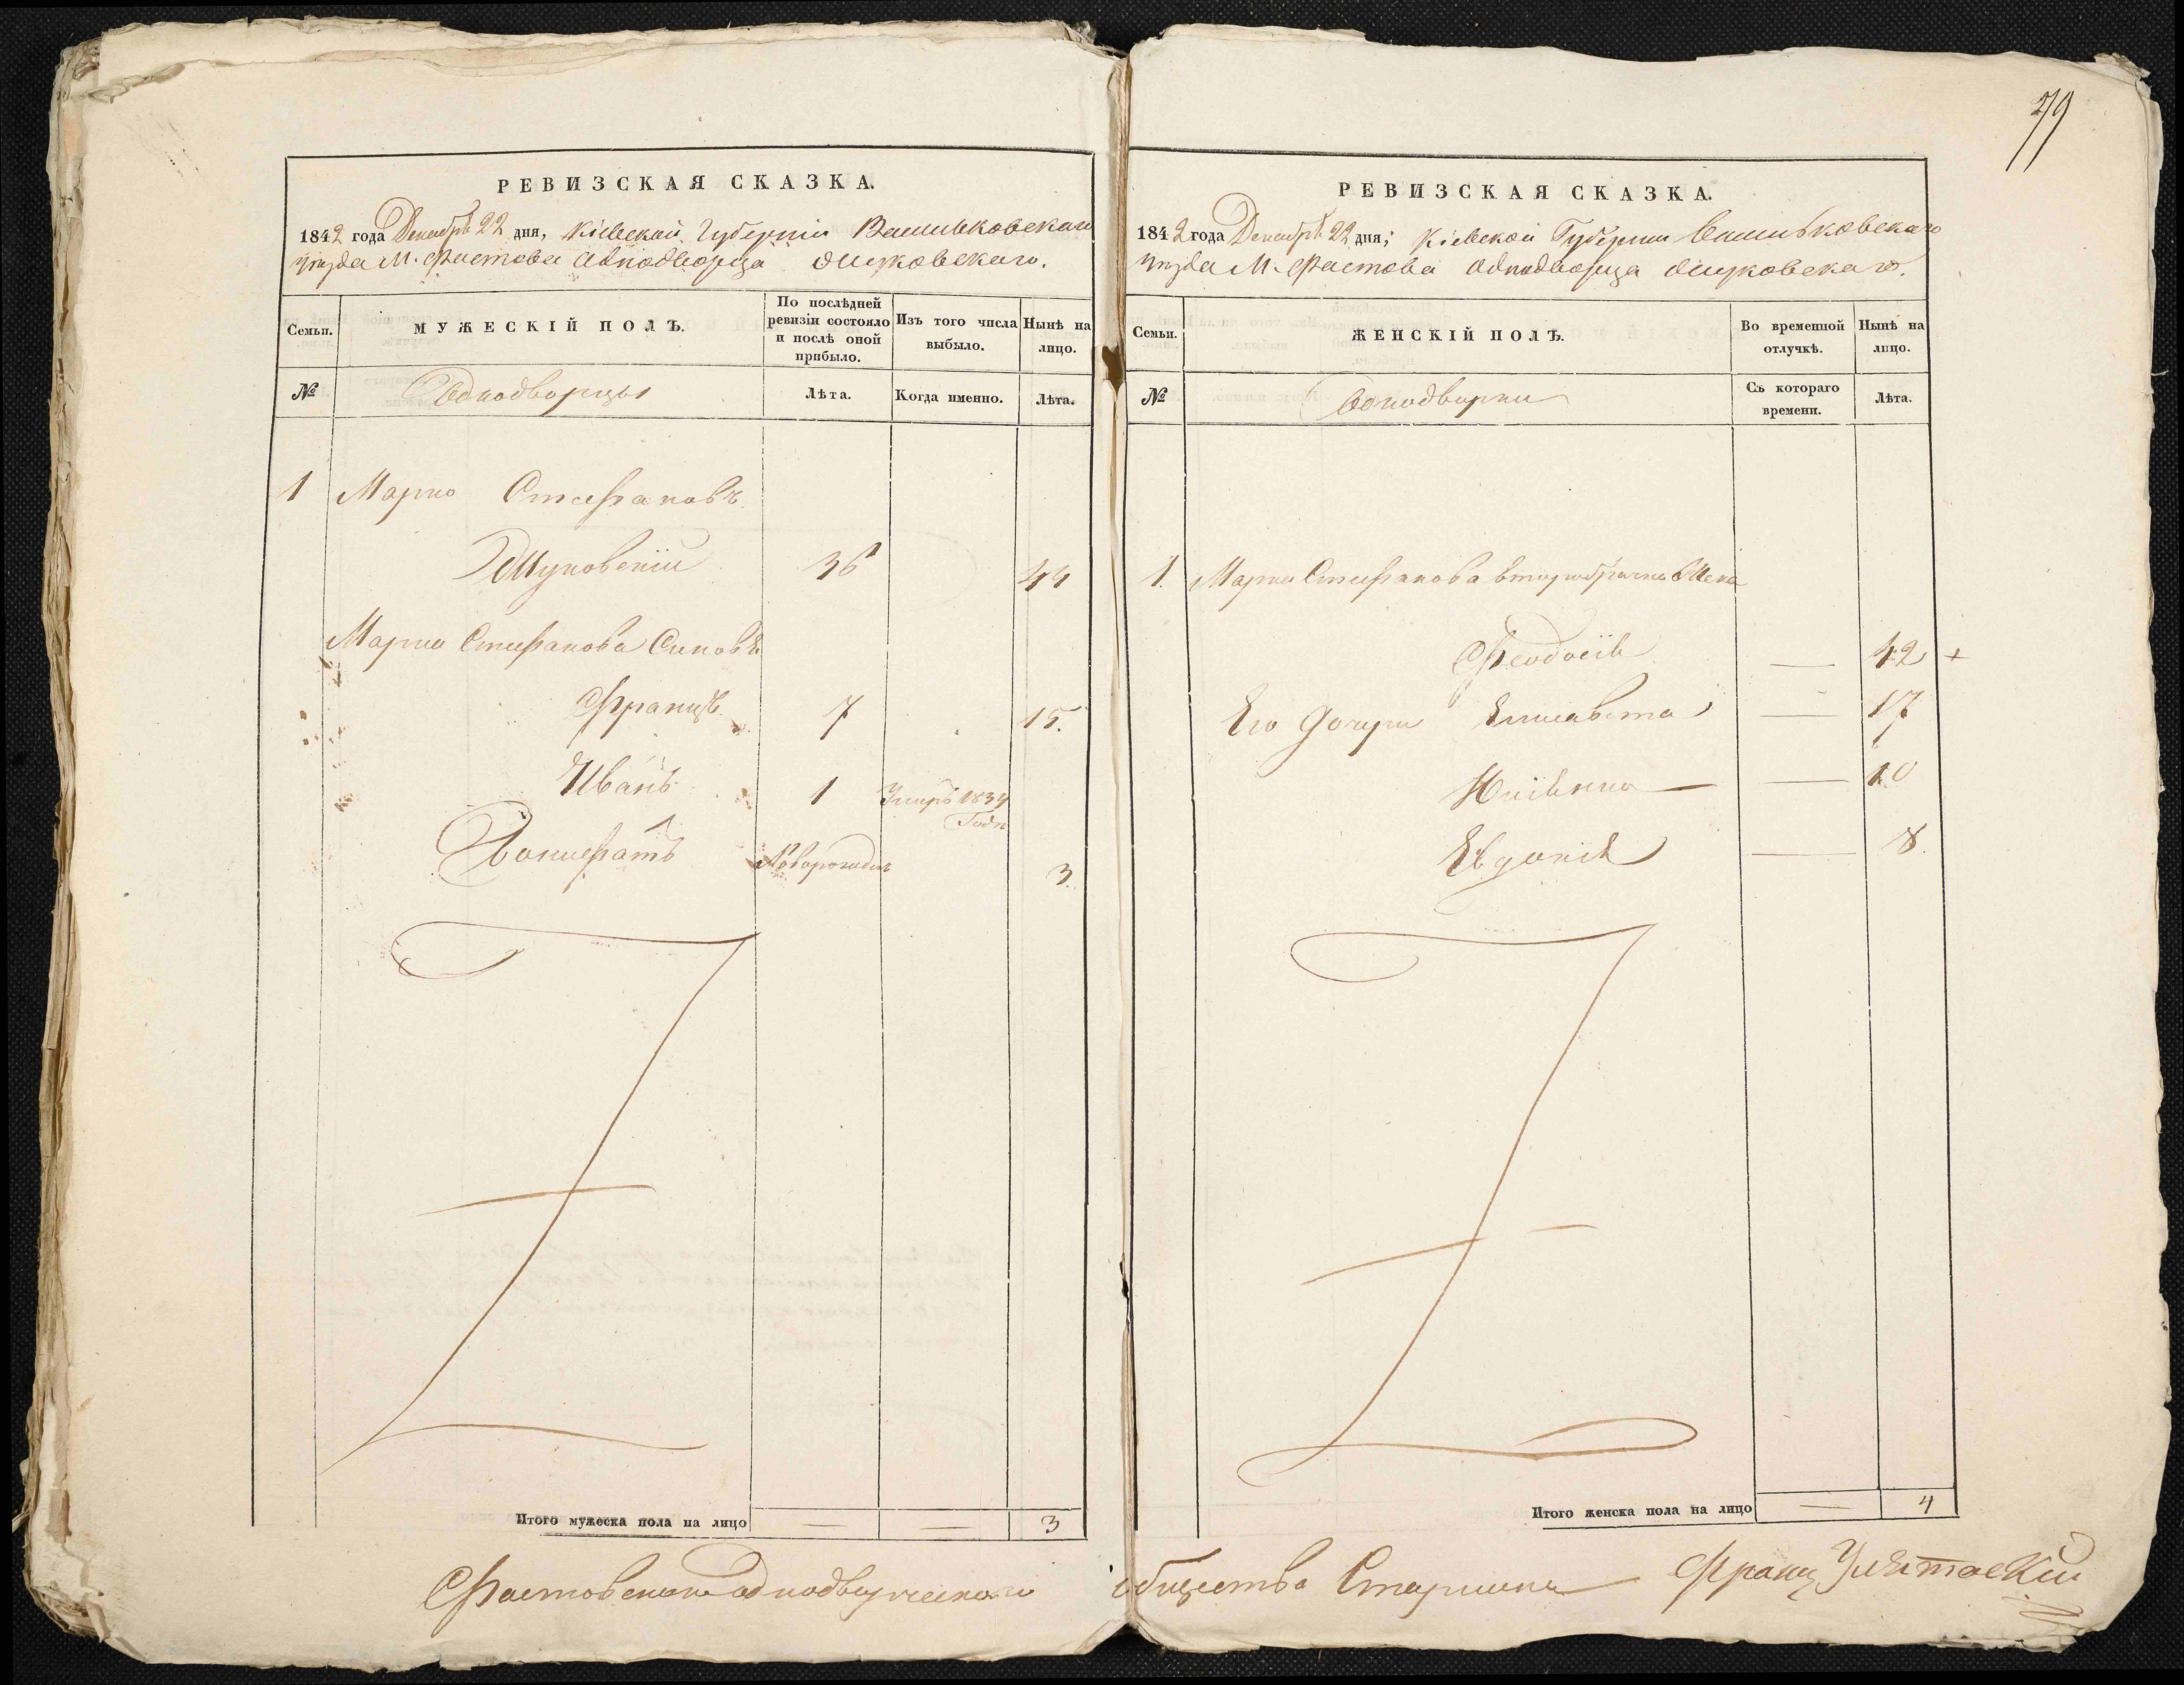 79
РЕВИЗСКАЯ СКАЗКА.
1842 года Декабря 22 дня, Кіевской Губерніи Васильковскаго
уезда М. Фастова Однодворца Жуковскаго.
Семьи.
МУЖЕСКІЙ ПОЛЪ.
По послѣдней ревизіи состояло и послѣ оной прибыло.
Изъ того числа выбыло.
Нынѣ на лицо.
№
Однодворцы
Лѣта.
Когда именно.
Лѣта.
1 Марко Стефановъ
Жуковскій 36 44
Марка Стефанова Синовья
Францъ 7 15.
Иванъ 1 Умеръ 1834
Года
Новорожден 3
Итого мужеска пола на лицо — — 3
РЕВИЗСКАЯ СКАЗКА.
1842 года Декабря 22 дня; Кіевской Губернии Васильковскаго
уезда М. Фастова Однодворца Жуковскаго.
Семьи.
ЖЕНСКІЙ ПОЛЪ.
Во временной отлучкѣ.
Нынѣ на лицо.
№
Однодворки
Съ котораго времени.
Лѣта.
1. Марка Стефанова второбрачна Жена
Феодосія — 42 +
Его Дочери Елисавета — 17
— 10
Евдокія — 8.
Итого женска пола на лицо — 4
Фастовскаго однодворческаго общества Старшина Франц